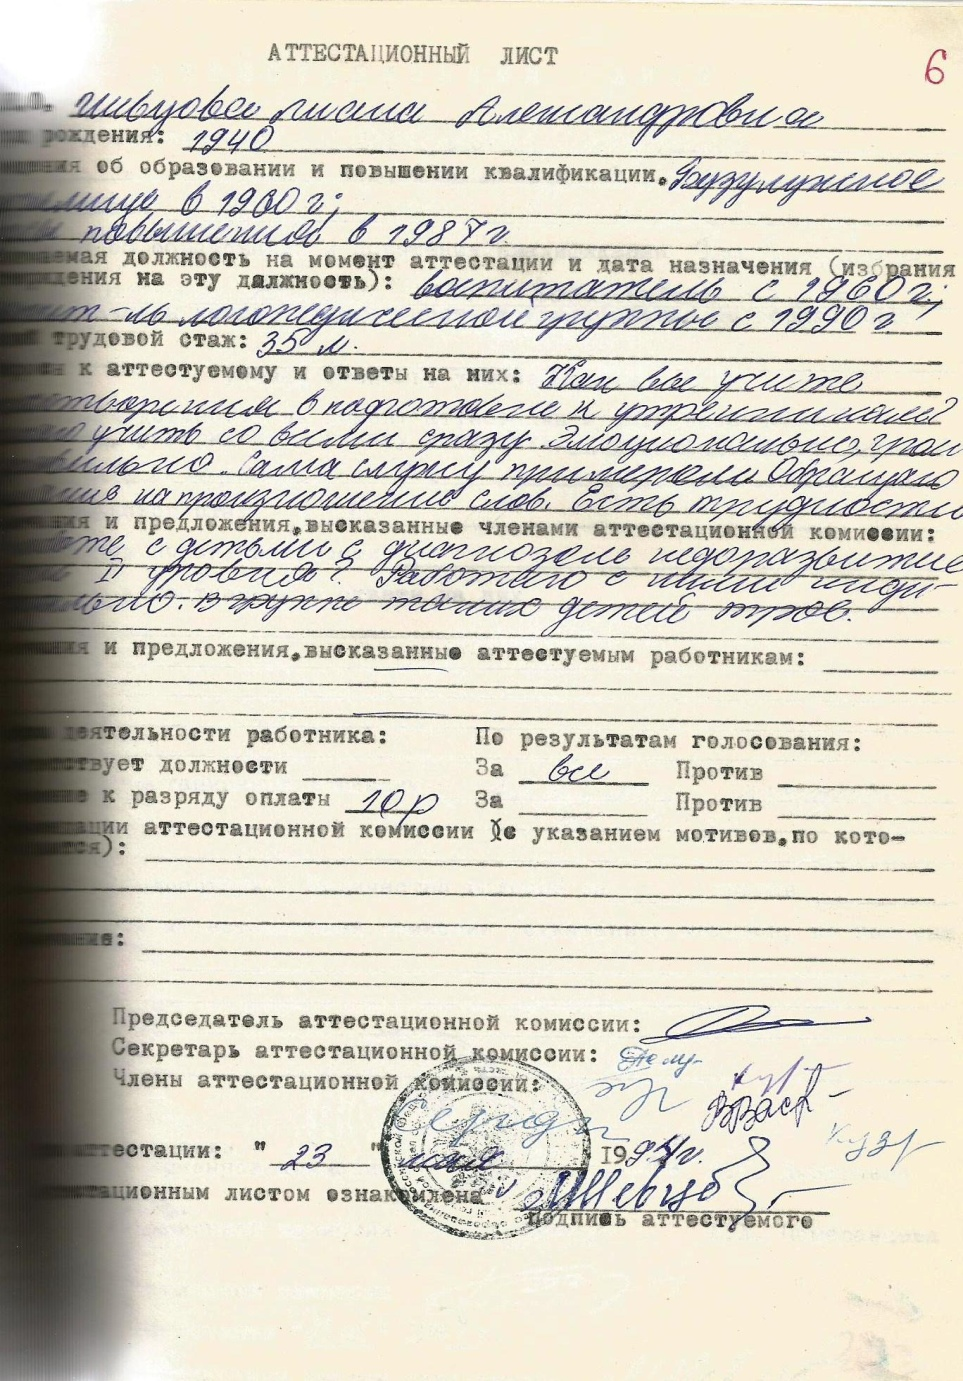 АТТЕСТАЦИОННЫЙ ЛИСТ
6
Шевцова Александровна
рождения: 1940
об образовании и повышении квалификации. Бузулукское
в 1960 г;
повышения в 1987 г.
должность на момент аттестации и дата назначения (избрания
на эту должность): воспитатель с 1960 г;
логопедической группы с 1990 г
трудовой стаж: 35 л.
к аттестуемому и ответы на них: Как вы учите
в подготовке к утренникам
учить со всеми сразу. Эмоционально,
Сама служу примером. Обращаю
на произношение слов. Есть трудности
и предложения, высказанные членами аттестационной комиссии:
с детьми с диагнозом недоразвитие
II уровня? Работаю с ними инди-
В группе таких детей
и предложения, высказанные аттестуемым работникам:
деятельности работника: По результатам голосования:
должности За все Против
к разряду оплаты 10 р За Против
аттестационной комиссии (с указанием мотивов, по кото-
):
Председатель аттестационной комиссии:
Секретарь аттестационной комиссии:
Члены аттестационной комиссии:
аттестации: " 23 " мая 1994 г.
листом ознакомлена Шевцо
подпись аттестуемого